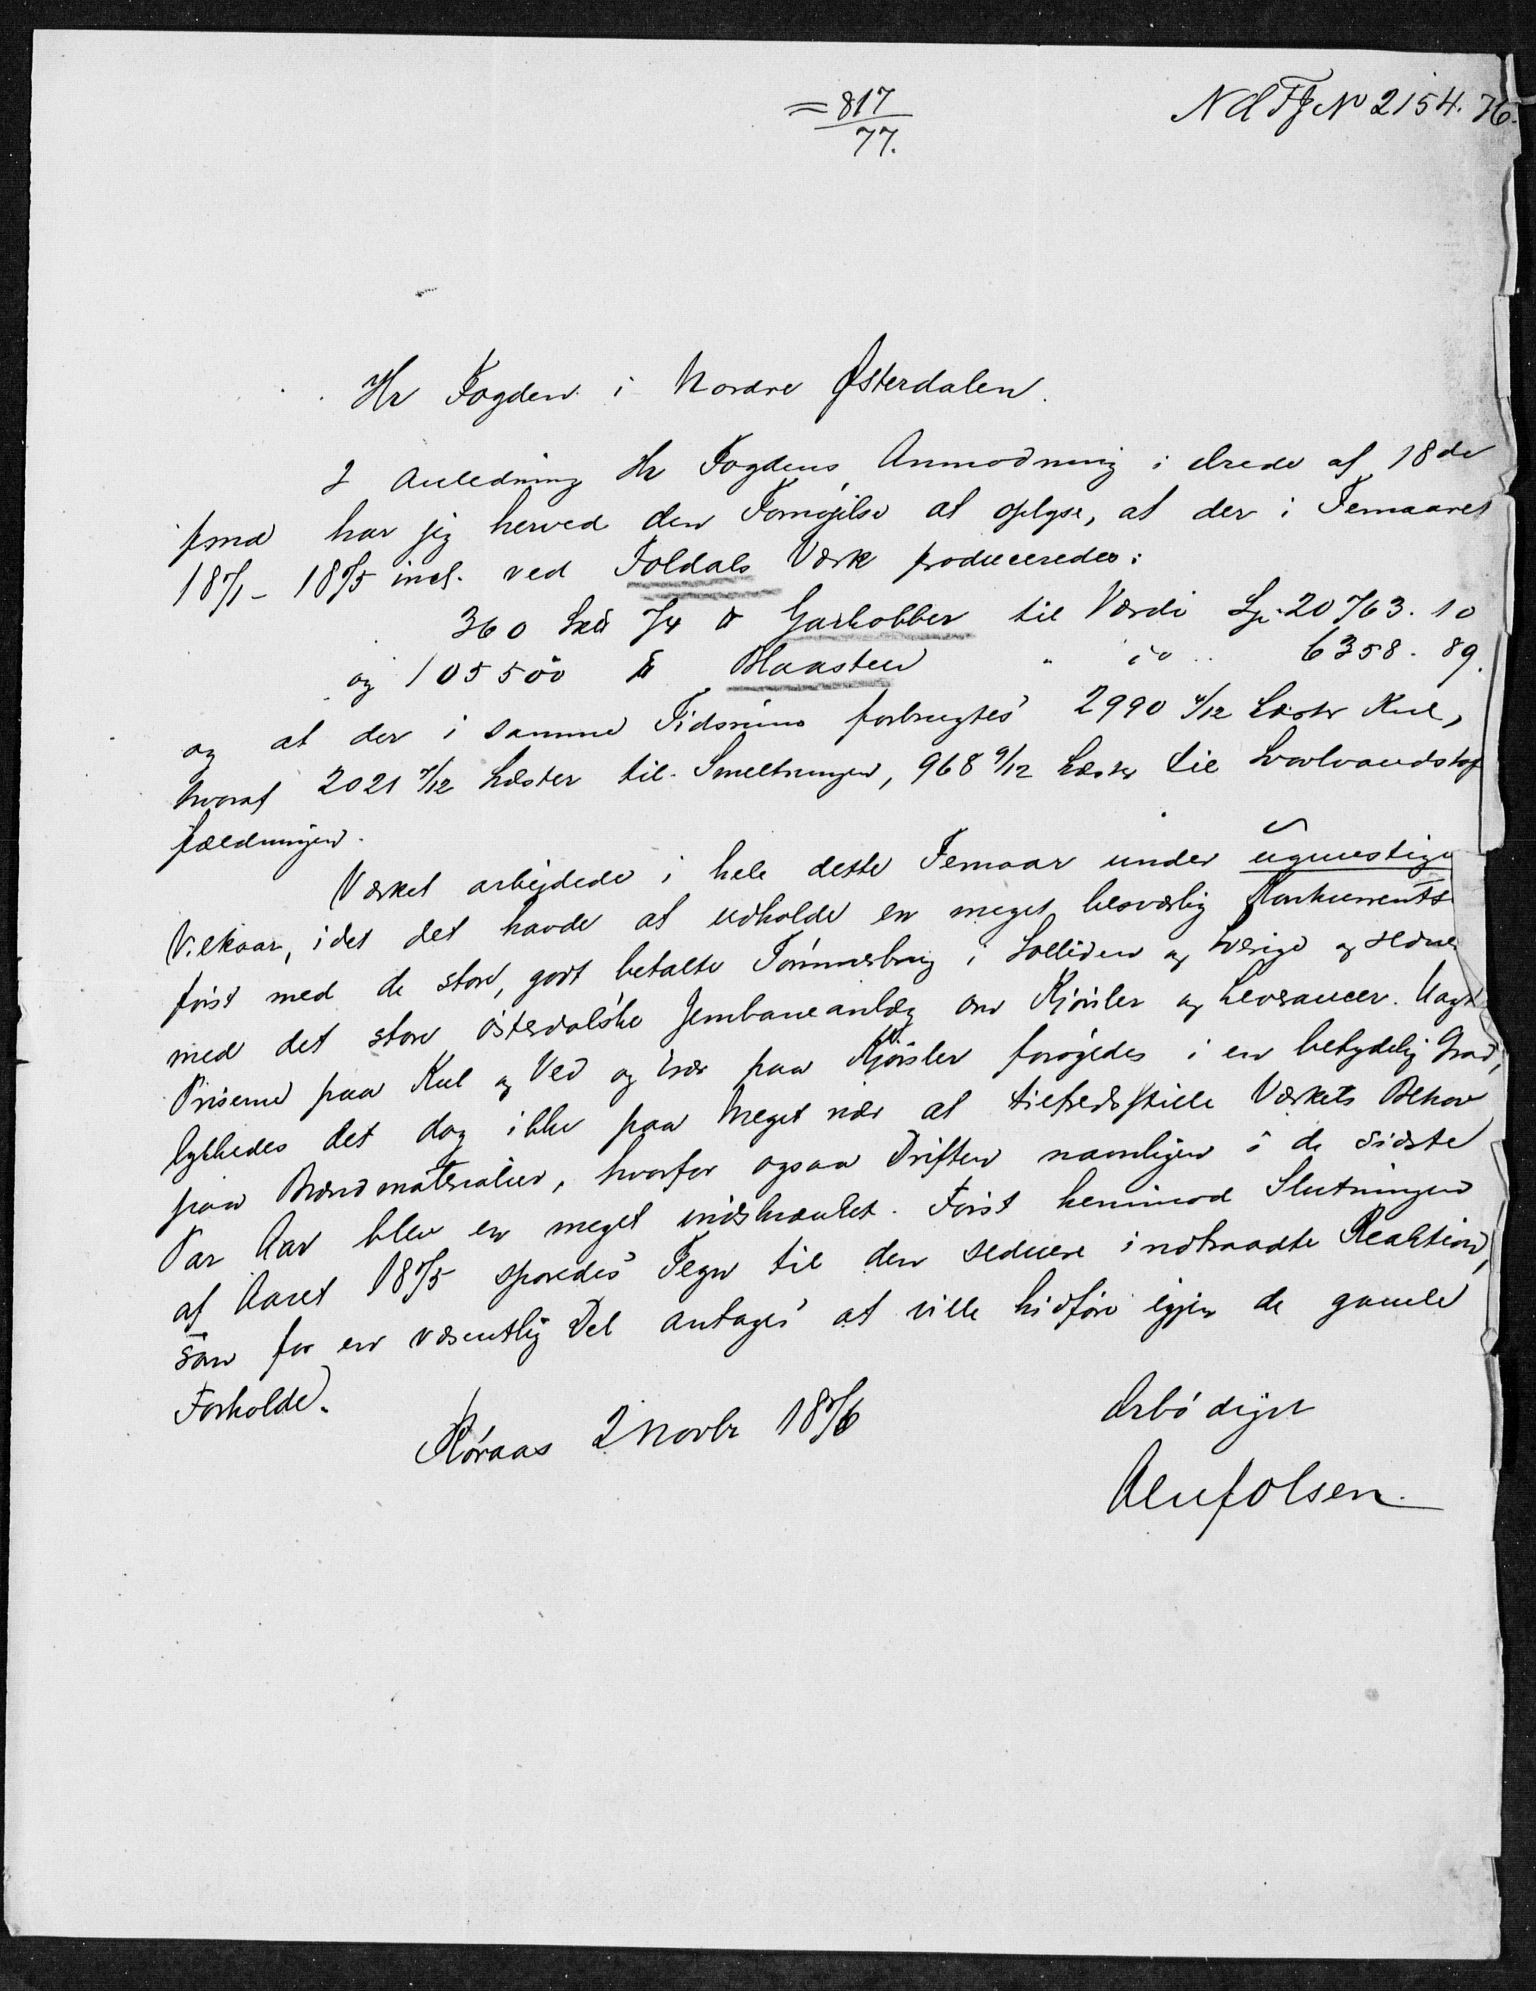 = 817
77.
N Ø Fg No 2154. 76.
Hr Fogden i Nordre Østerdalen.
I Anledning Hr Fogdens Anmodning i Brede af 18de
f md har jeg herved den Fornøjelse at oplyse, at der i Femaaret
1871 - 1875 incl. ved Foldals Værk produceredes:
360 Sk℔ 7/4 ℔ Garkobber til Værdi Sp. 20763. 10
og 105500 ℔ Blaasten " do .. 6358. 89.
og at der i samme Tidsrum forbrugtes 2990 4/12 Læster Kul,
hvoraf 2021 7/12 Læster til Smeltningen, 968 9/12 Læster til Svovlvandstof
fældningen.
Værket arbejdede i hele dette Femaar under ugunstige
Vilkaar, idet det havde at udholde en meget besværlig Konkurrents
først med de store, godt betalte Tømmerbrug i Solliden og Sverige og sedner
med det store østerdalske Jernbaneanlæg om Kjørsler og Leverancer. Uagt
Priserne paa Kul og Ved og især paa Kjørsler forøgedes i en betydelig Grad,
lykkedes det dog ikke paa meget nær at tilfredsstille Værkets Behov
paa Brændmaterialier, hvorfor ogsaa Driften navnligen i de sidste
Par Aar blev en meget indskrænket. Først henimod Slutningen
af Aaret 1875 sporedes Tegn til den sednere indtraadte Reaktion,
som for en væsentlig Del antages at ville hidføre igjen de gamle
Forholde.
Røraas 2 Novbr 1876
Ærbødigst
Oluf Olsen.